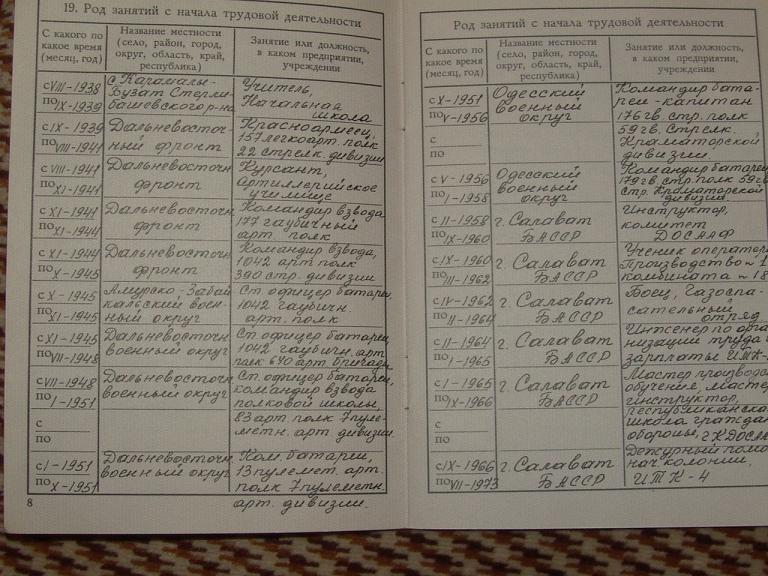 19. Род занятий с начала трудовой деятельности
С какого по какое время (месяц, год)
Название местности (село, район, город, округ, область, край, республика)
Занятие или должность, в каком предприятии, учреждении
с VIII-1938 по IX-1939
с. Кармалы-Бузат Стерлибашевского р-на
Учитель, Начальная школа
с IX-1939 по VIII-1941
Дальневосточный фронт
Красноармеец, 157 легкоарт. полк 22 стрелк. дивизии
с VIII-1941 по XI-1941
Дальневосточн фронт
Курсант, Артиллерийское училище
с XI-1941 по XI-1944
Дальневосточн фронт
Командир взвода 177 гаубичный арт. полк
с XI-1944 по X-1945
Дальневосточн фронт
Командир взвода, 1042 арт. полк, 390 стр. дивизии
с X-1945 по XI-1945
Амурско-Забайкальский воен-ный округ
Ст. офицер батареи, 1042 гаубичн. арт. полк
с XI-1945 по VII-1948
Дальневосточн военный округ
Ст. офицер батареи, 1042 гаубичн. арт. полк 640 арт. бригады
с VII-1948 по I-1951
Дальневосточн военный округ
Ст. офицер батареи, командир взвода полковой школы,
с
по
83 арт. полк 7 пуле-метн. арт. дивизии.
с I-1951 по X-1951
Дальневосточн военный округ
Ком. батареи, 13 пулемет. арт. полк 7 пулеметн. арт. дивизии.
8
Род занятий с начала трудовой деятельности
С какого по какое время (месяц, год)
Название местности (село, район, город, округ, область, край, республика)
Занятие или должность, в каком предприятии, учреждении
с X-1951 по V-1956
Одесский военный округ
Командир бата-реи - капитан 176 гв. стр. полк
с
по
59 гв. Стрелк. Краматорской дивизии.
с V-1956 по I-1958
Одесский военный округ
Командир батареи, 179 гв. стр. полк 59 гв. стр. Краматорской дивизии
с II-1958 по IX-1960
г. Салават БАССР
Инструктор, комитет ДОСААФ
с IX-1960 по III-1962
г. Салават БАССР
Ученик оператора Производство №1 комбината №18
с IV-1962 по II-1964
г. Салават БАССР
Боец, Газоспа-сательный отряд
с II-1964 по I-1965
г. Салават БАССР
Инженер по орга низации труда и зарплаты ИТК-
с I-1965 по IX-1966
г. Салават БАССР
Мастер производ обучения, мастер инструктор,
с
по
республиканская школа граждан обороны, г К ДОСА
с IX-1966 по VII-1973
г. Салават БАССР
Дежурный помо нач. колонии, ИТК-4